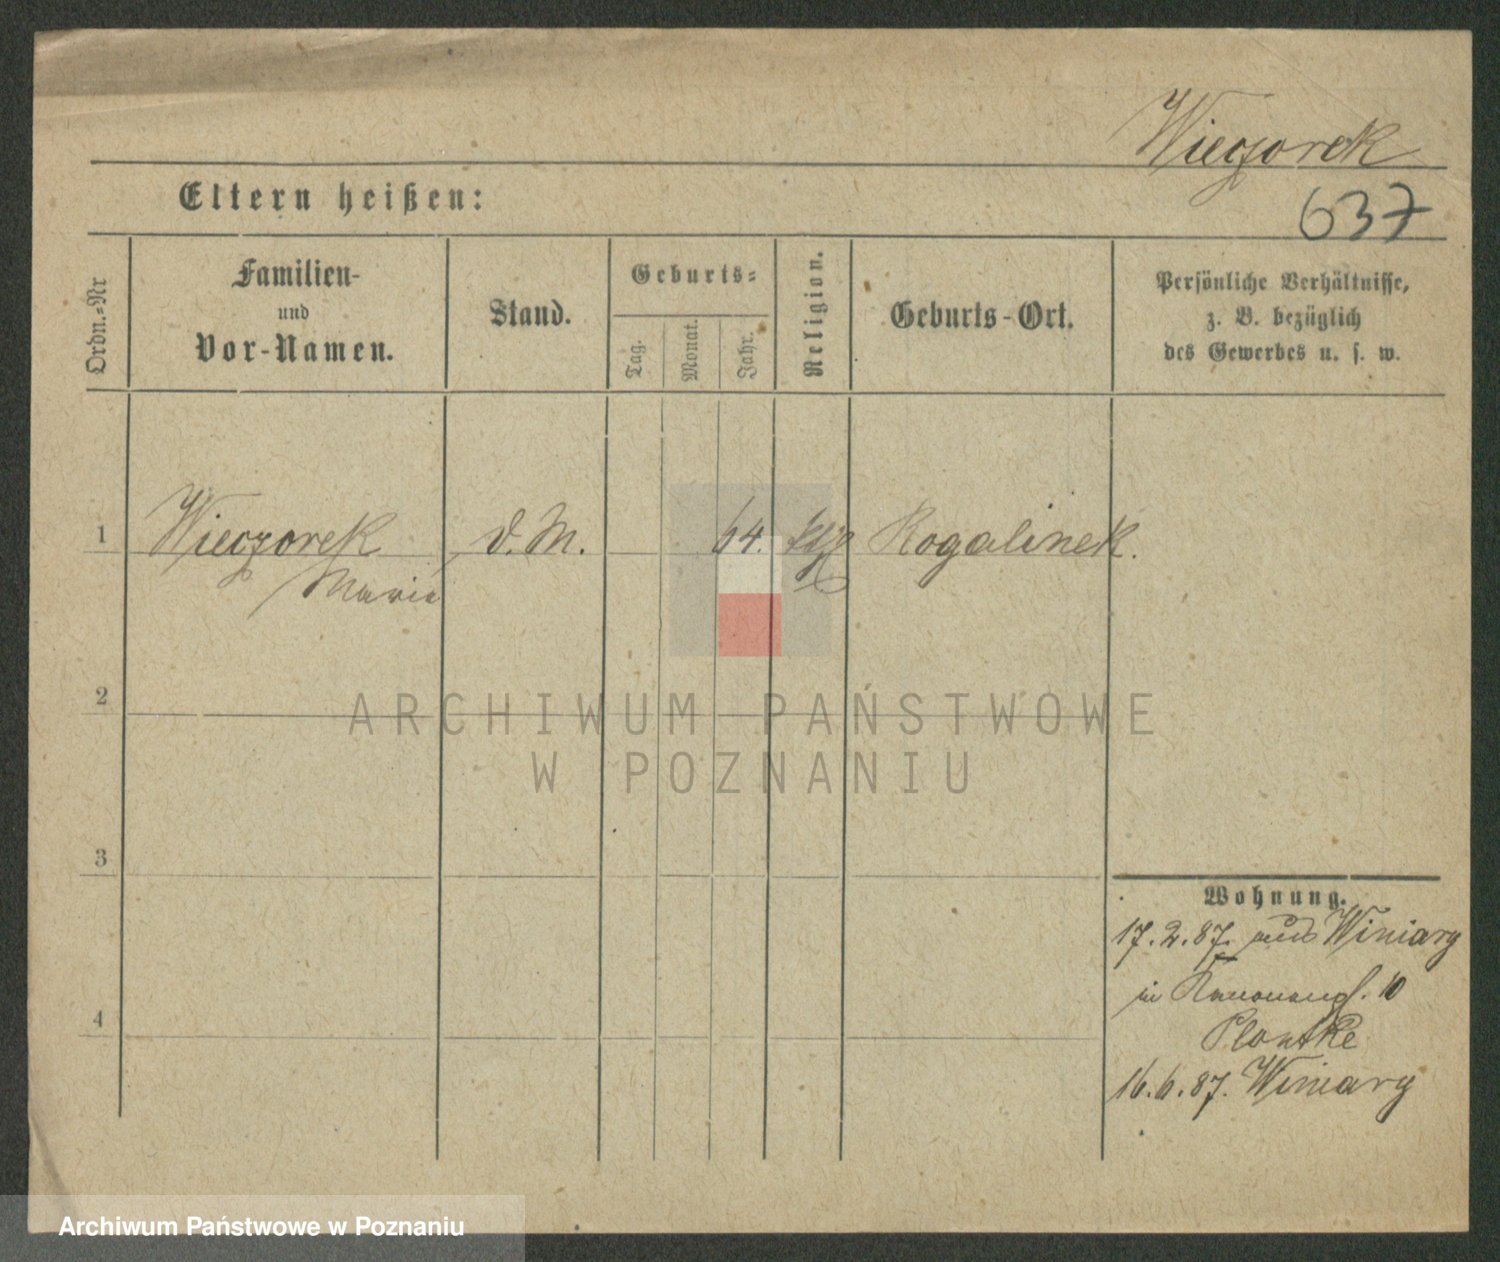 Wieczorek
Eltern heißen:
637
Ordn.=Nr
Familien-
und
Vor-Namen.
Stand.
Geburts=
Tag.
Monat.
Jahr.
Religion.
Geburts-Ort.
Persönliche Verhältnisse,
z. B. bezüglich
des Gewerbes u. s. w.
1 Wieczorek D. M. 64. Rogalinek.
Marie
2
ARCHIWUM PAŃSTWOWE
W POZNANIU
3
Wohnung.
17.2.87. aus Winiary
in Kanonenpl. 10
4
Plontke
16.6.87. Winiary
Archiwum Państwowe w Poznaniu